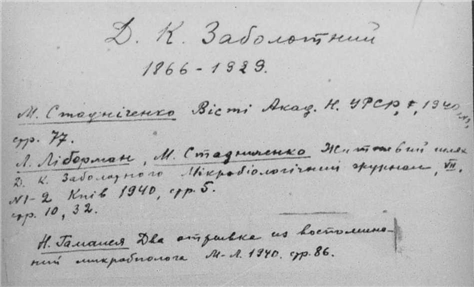 Д. К. Заболотний
1866-1929.
М. Стадніченко Вісті Акад. Н. УРСР, 1940
стр. 77.
Л. Ліберман, М. Стадниченко Життєвий шлях
Д. К. Заболотного Мікробіологічний журнал, VII,
№1-2 Київ 1940, стр. 5.
стр. 10, 32.
Н. Гамалея Два отрывка из воспомина-
ний микробиолога М-Л. 1940. стр. 86.